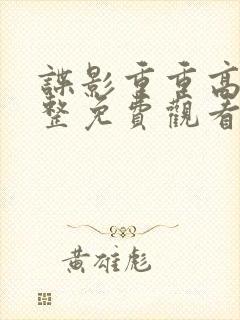 諜影重重高
整免費觀看
黃雄彪